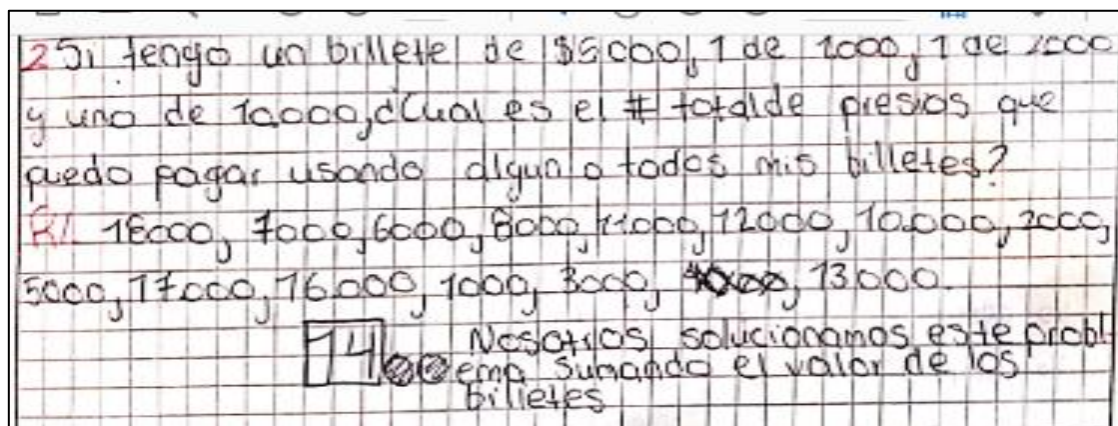 2 Si tengo un billete de $5000, 1 de 1000, 1 de 2000
y uno de 10.000, ¿Cual es el # total de presios que
puedo pagar usando algun o todos mis billetes?
R/. 18000, 7000, 6000, 8000, 11.000, 12000, 10.000, 2000,
5000, 17.000, 16.000, 1000, 3000, 13.000.
14 Nosotros solucionamos este probl
ema sumando el valor de los
billetes